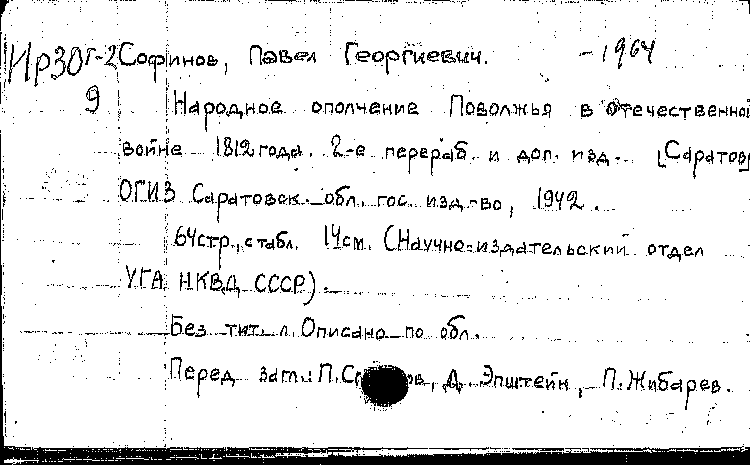 Ир30Г-2 Софинов, Павел Георгиевич. -1964
9 Народное ополчение Поволжья в Отечественной
войне 1812 года. 2-е перераб. и доп. изд. [Саратов]
ОГИЗ Саратовск. обл. гос. изд-во, 1942.
64стр., с табл. 14см. (Научно-издательский отдел
УГА НКВД СССР).
Без тит. л. Описано по обл.
Перед загл: П. Д. Эпштейн, П. Жибарев.